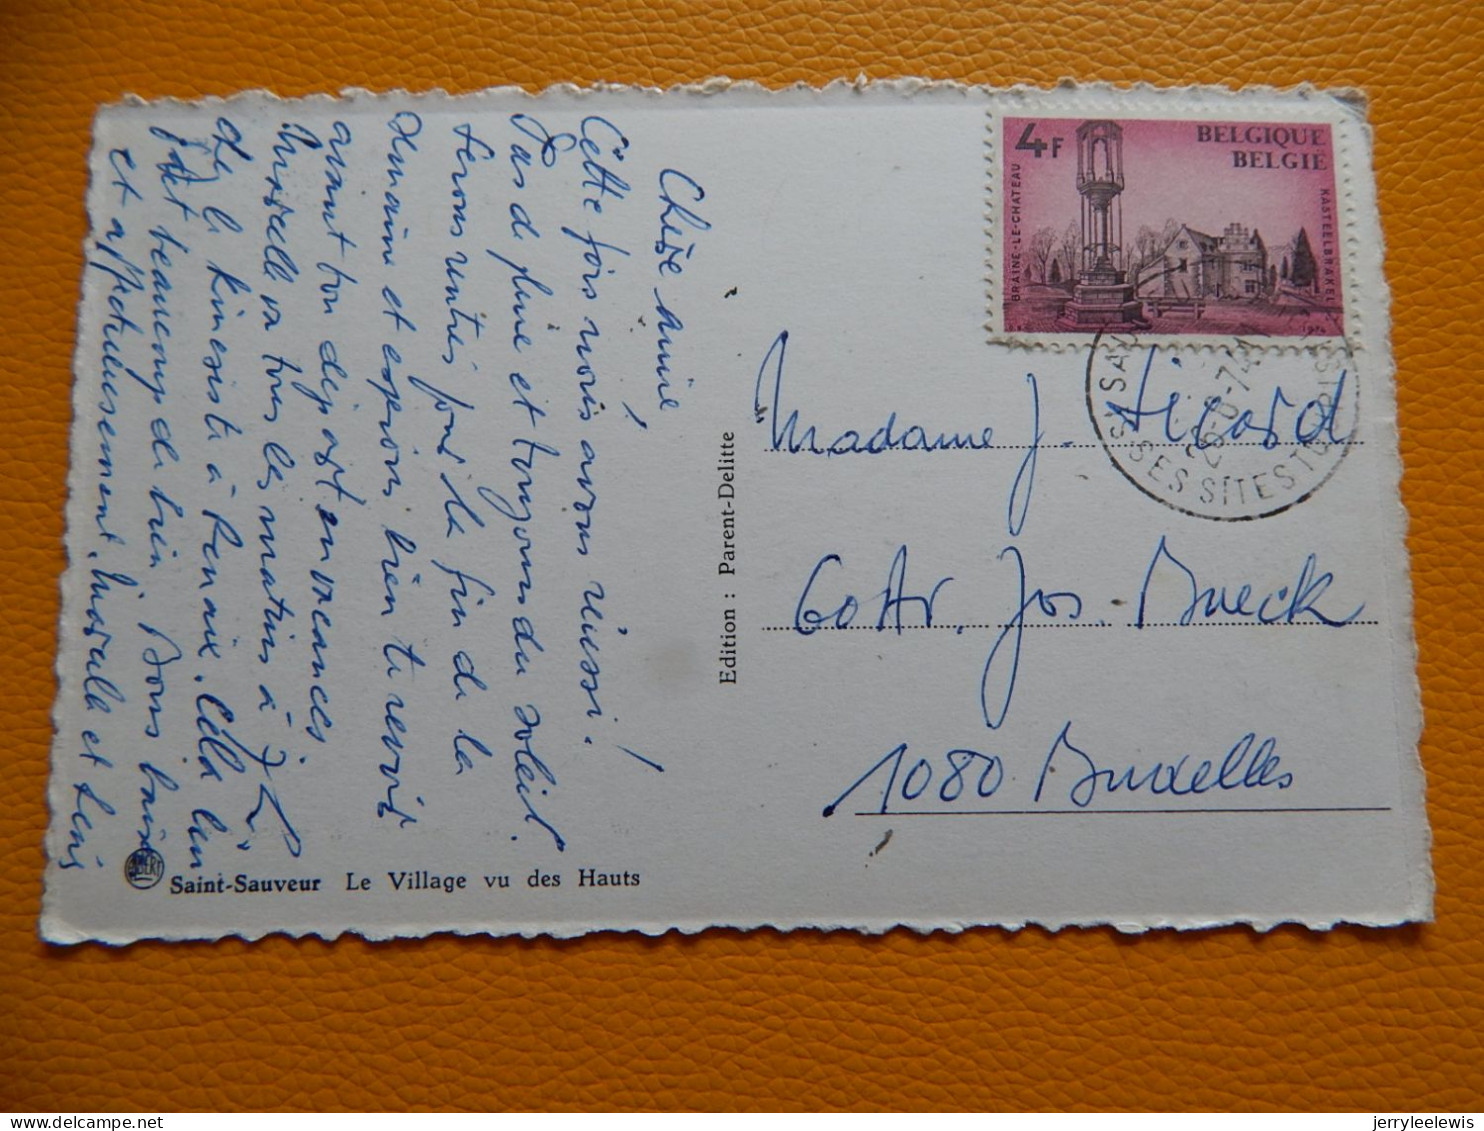 Chère amie
Cette fois nous avons réussi!
Pas de pluie et toujours du soleil.
serons rentrés pour la fin de la
semaine et espérons bien te revoir
avant ton départ en vacances
va tous les matins à
chez le kinesiste à Renaix. Cela lui
fait beaucoup de bien. Bons baisers
et affectueusement.
Saint-Sauveur Le Village vu des Hauts
Edition : Parent-Delitte
4F
BELGIQUE
BELGIE
BRAINE-LE-CHATEAU
KASTEELBRAKEL
1974
SES SITES TOURIST
Madame J. Sicard
60 Av. Jos. Bueck
1080 Bruxelles
jerryleelewis